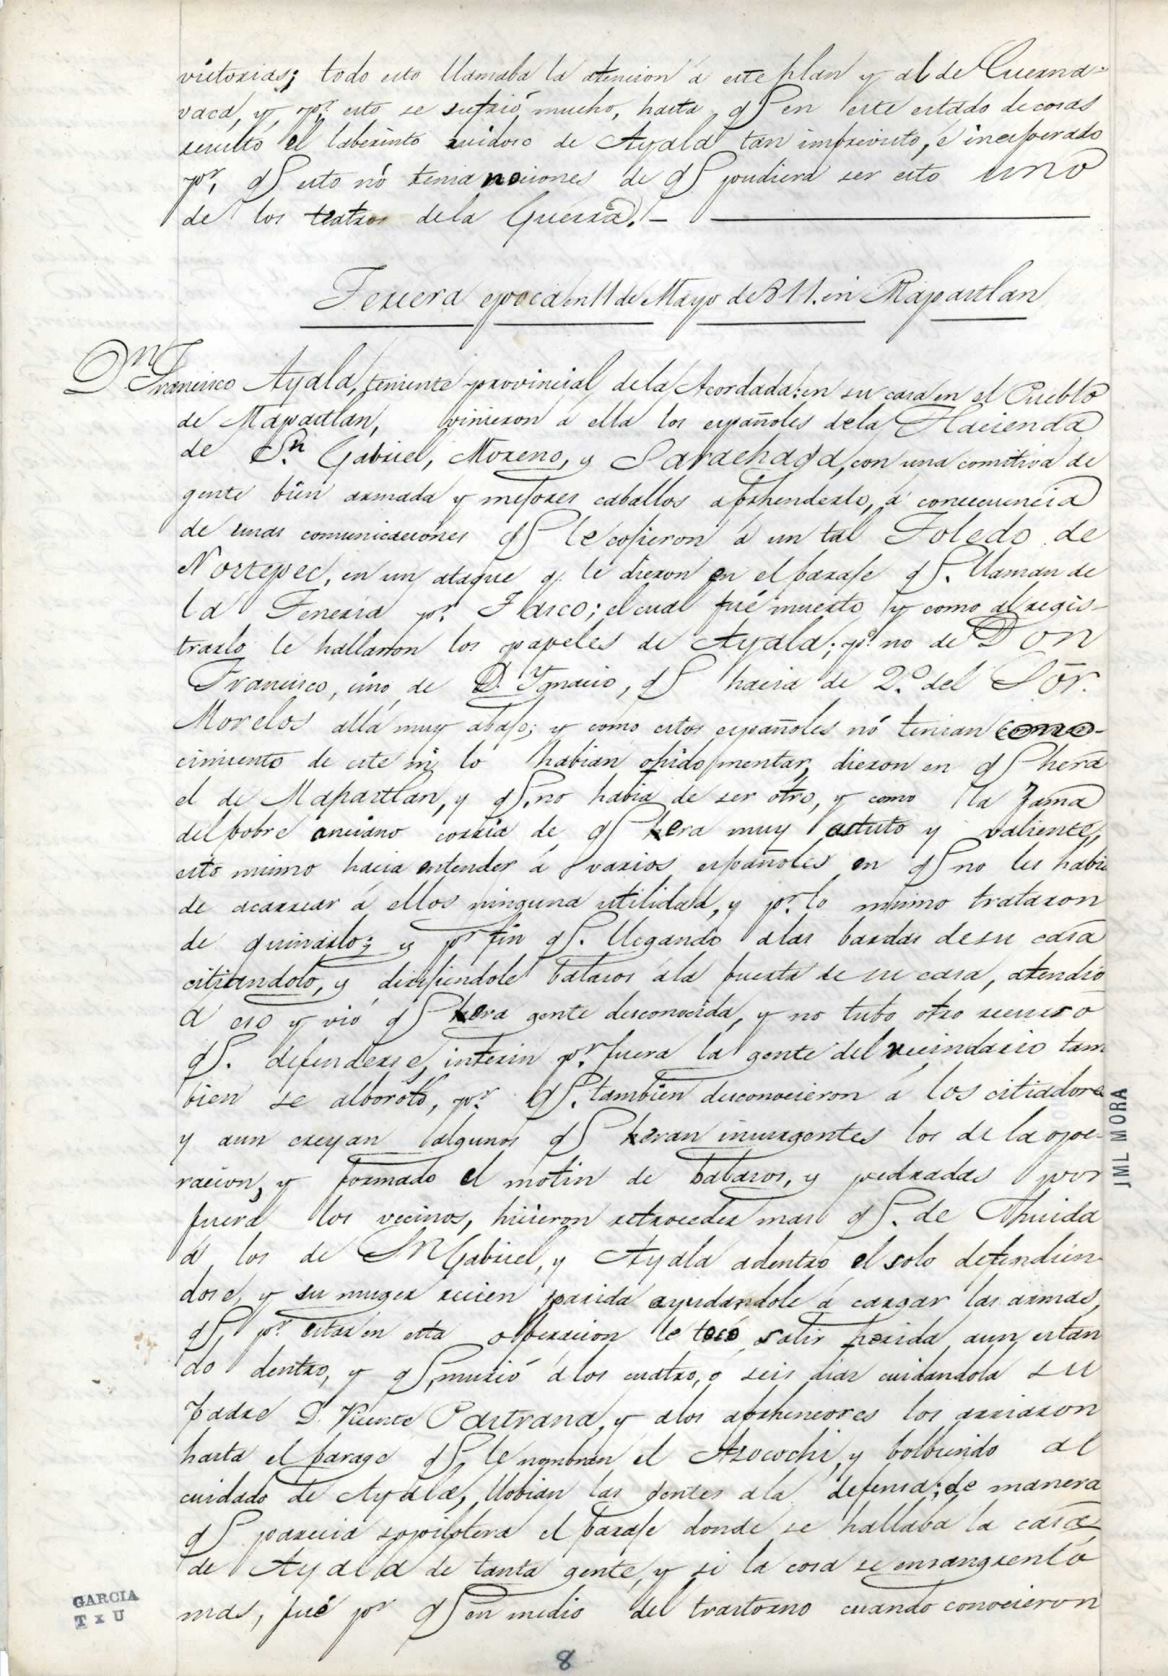 victorias; todo esto llamaba la atencion á este plan y al de Cuerna-
vaca, y, pr. esto se sufrió mucho, hasta, qe en este estado de cosas
resultó el laberinto ruidoso de Ayala tan imprevisto, é inesperado
pr. qe esto nó tenia nociones de qe pudiera ser esto uno
de los teatros de la Guerra. —
Tercera epoca en 11 de Mayo de 811. en Mapastlan
Dn Francisco Ayala, teniente provincial de la Acordada: en su casa en el Pueblo
de Mapastlan, vinieron á ella los españoles de la Hacienda
de Sn. Gabriel, Moreno, y Sarachaga, con una comitiva de
gente bien armada y mejores caballos á prhenderlo, á consecuencia
de unas comunicaciones qe le cojieron á un tal Toledo de
Noxtepec, en un ataque q. le dieron en el paraje qe. llaman de
la Teneria pr. Tasco; el cual fué muerto y como al regis-
trarlo le hallaron los papeles de Ayala; po. no de Don
Francisco, sino, de D. Ygnacio, qe hacia de 2.o del Sōr.
Morelos allá muy abajo; y como estos españoles nó tenian cono-
cimiento de este ni lo habian ohido mentar, dieron en qe hera
el de Mapastlan, y qe. no habia de ser otro, y como la fama
del pobre anciano corria de qe hera muy astuto y valiente,
esto mismo hacia entender á varios españoles en qe no les habia
de acarrear á ellos ninguna utilidad, y pr. lo mismo trataron
de quinarlo; y pr fin qe. llegando á las bardas de su casa
citiandolo, y dirijiendole balazos á la puerta de su casa, atendió
á eso y vió qe hera gente desconocida, y no tubo otro recurso
qe. defenderse, interin pr. fuera la gente del vecindario tam
bien se alborotó, pr. qe. tambien desconocieron á los citiadores
y aun creyan algunos qe heran insurgentes los de la ope-
racion, y formado el motin de balazos, y pedradas por
fuera los vecinos, hicieron retroceder mas qe. de Ahuida
á los de Sn Gabriel, y Ayala adentro el solo defendien-
dose, y su muger recien parida ayudandole á cargar las armas,
qe, pr. estar en esta operacion le tocó salir herida aun estan
do dentro, y qe, murió á los cuatro, o seis dias cuidandola su
Padre D. Vicente Pastrana, y á los aprhensores los arriaron
hasta el parage qe le nombran el Azocochi, y bolbiendo al
cuidado de Ayala, llobian las gentes á la defensa; de manera
qe parecia sopilotera el paraje donde se hallaba la casa
de Ayala de tanta gente, y si la cosa se ensangrentó
mas, fué por qe en medio del trastorno cuando conocieron
JML MORA
GARCIA
T x U
8